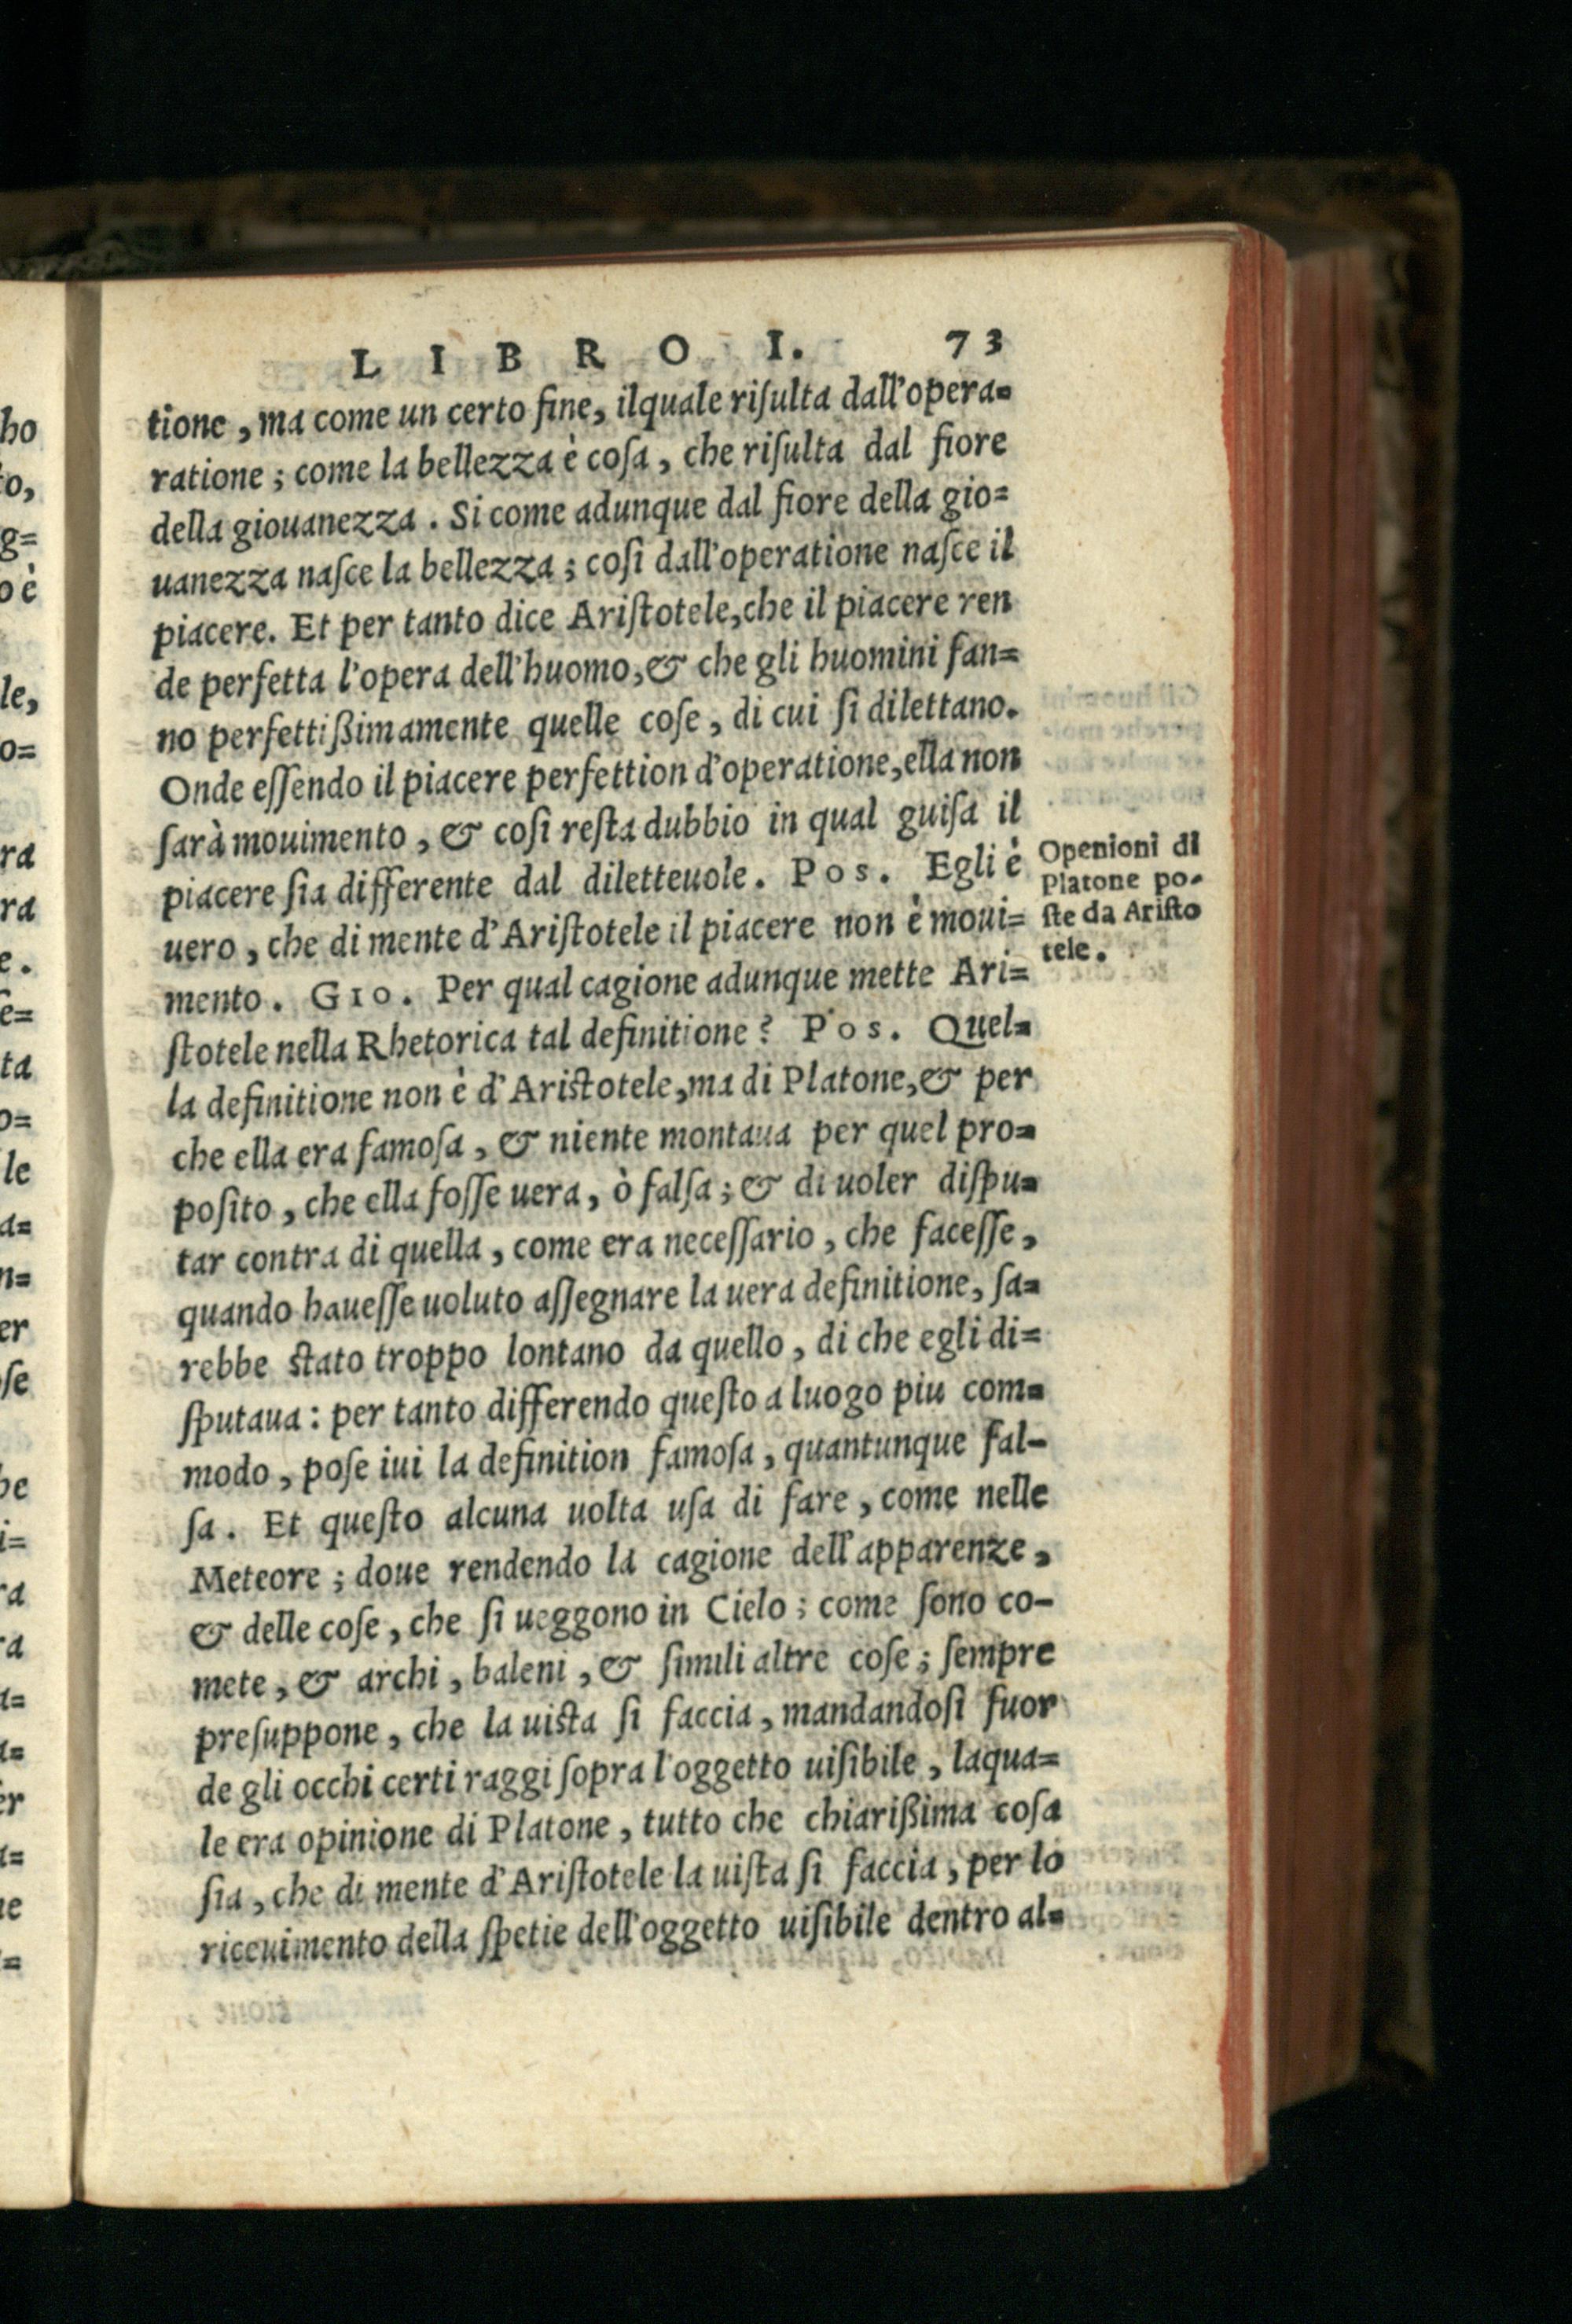 LIBRO I. 73
tione, ma come un certo fine, ilquale riſulta dall'opera=
ratione; come la bellezza è coſa, che riſulta dal fiore
della giouanezza. Si come adunque dal fiore della gio=
uanezza naſce la bellezza; coſi dall'operatione naſce il
piacere. Et per tanto dice Ariſtotele, che il piacere ren
de perfetta l'opera dell'huomo, & che gli huomini fan=
no perfettißimamente quelle coſe, di cui ſi dilettano.
Onde eſſendo il piacere perfettion d'operatione, ella non
ſarà mouimento, & coſi reſta dubbio in qual guiſa il
piacere ſia differente dal diletteuole. Pos. Egli è
uero, che di mente d'Ariſtotele il piacere non è moui=
mento. Gio. Per qual cagione adunque mette Ari=
ſtotele nella Rhetorica tal definitione? Pos. Quel=
la definitione non è d'Ariſtotele, ma di Platone, & per
che ella era famoſa, & niente montaua per quel pro=
poſito, che ella foſſe uera, ò falſa; & di uoler diſpu=
tar contra di quella, come era neceſſario, che faceſſe,
quando haueſſe uoluto aſſegnare la uera definitione, ſa=
rebbe ſtato troppo lontano da quello, di che egli di=
ſputaua: per tanto differendo queſto a luogo piu com=
modo, poſe iui la definition famoſa, quantunque fal-
ſa. Et queſto alcuna uolta uſa di fare, come nelle
Meteore; doue rendendo la cagione dell'apparenze,
& delle coſe, che ſi ueggono in Cielo; come ſono co-
mete, & archi, baleni, & ſimili altre coſe; ſempre
preſuppone, che la uiſta ſi faccia, mandandoſi fuor
de gli occhi certi raggi ſopra l'oggetto uiſibile, laqua=
le era opinione di Platone, tutto che chiarißima coſa
ſia, che di mente d'Ariſtotele la uiſta ſi faccia, per lo
riceuimento della ſpetie dell'oggetto uiſibile dentro al=
Openioni di
Platone po-
ſte da Ariſto
tele.
ho
to,
g=
o è
le,
o=
ra
ra
e.
ſe=
ta
o=
le
a=
n=
er
oſe
he
i=
ra
ra
a=
a=
er
a=
ne
=